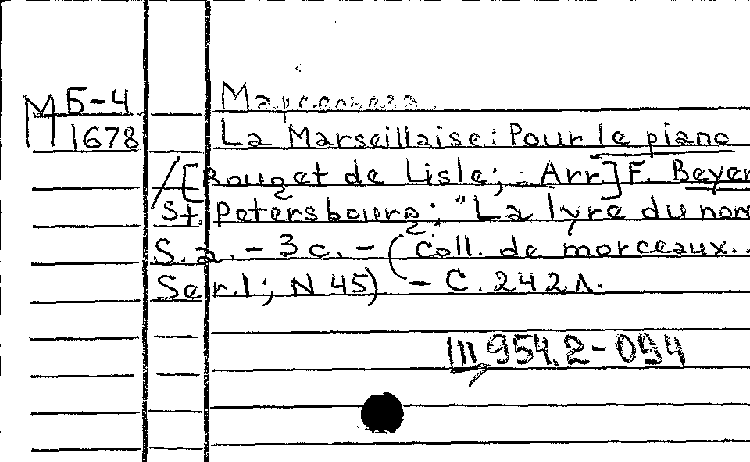 М Б-4
1678
Марсельеза
La Marseillaise: Pour le piano
/[Rouget de Lisle; Arr.] F. Beyer
St. Petersbourg: "La lyre du nor
S. a. - 3 c. - (Coll. de morceaux..
Ser. 1; N 45) - С. 242 л.
Ш 954.2-094